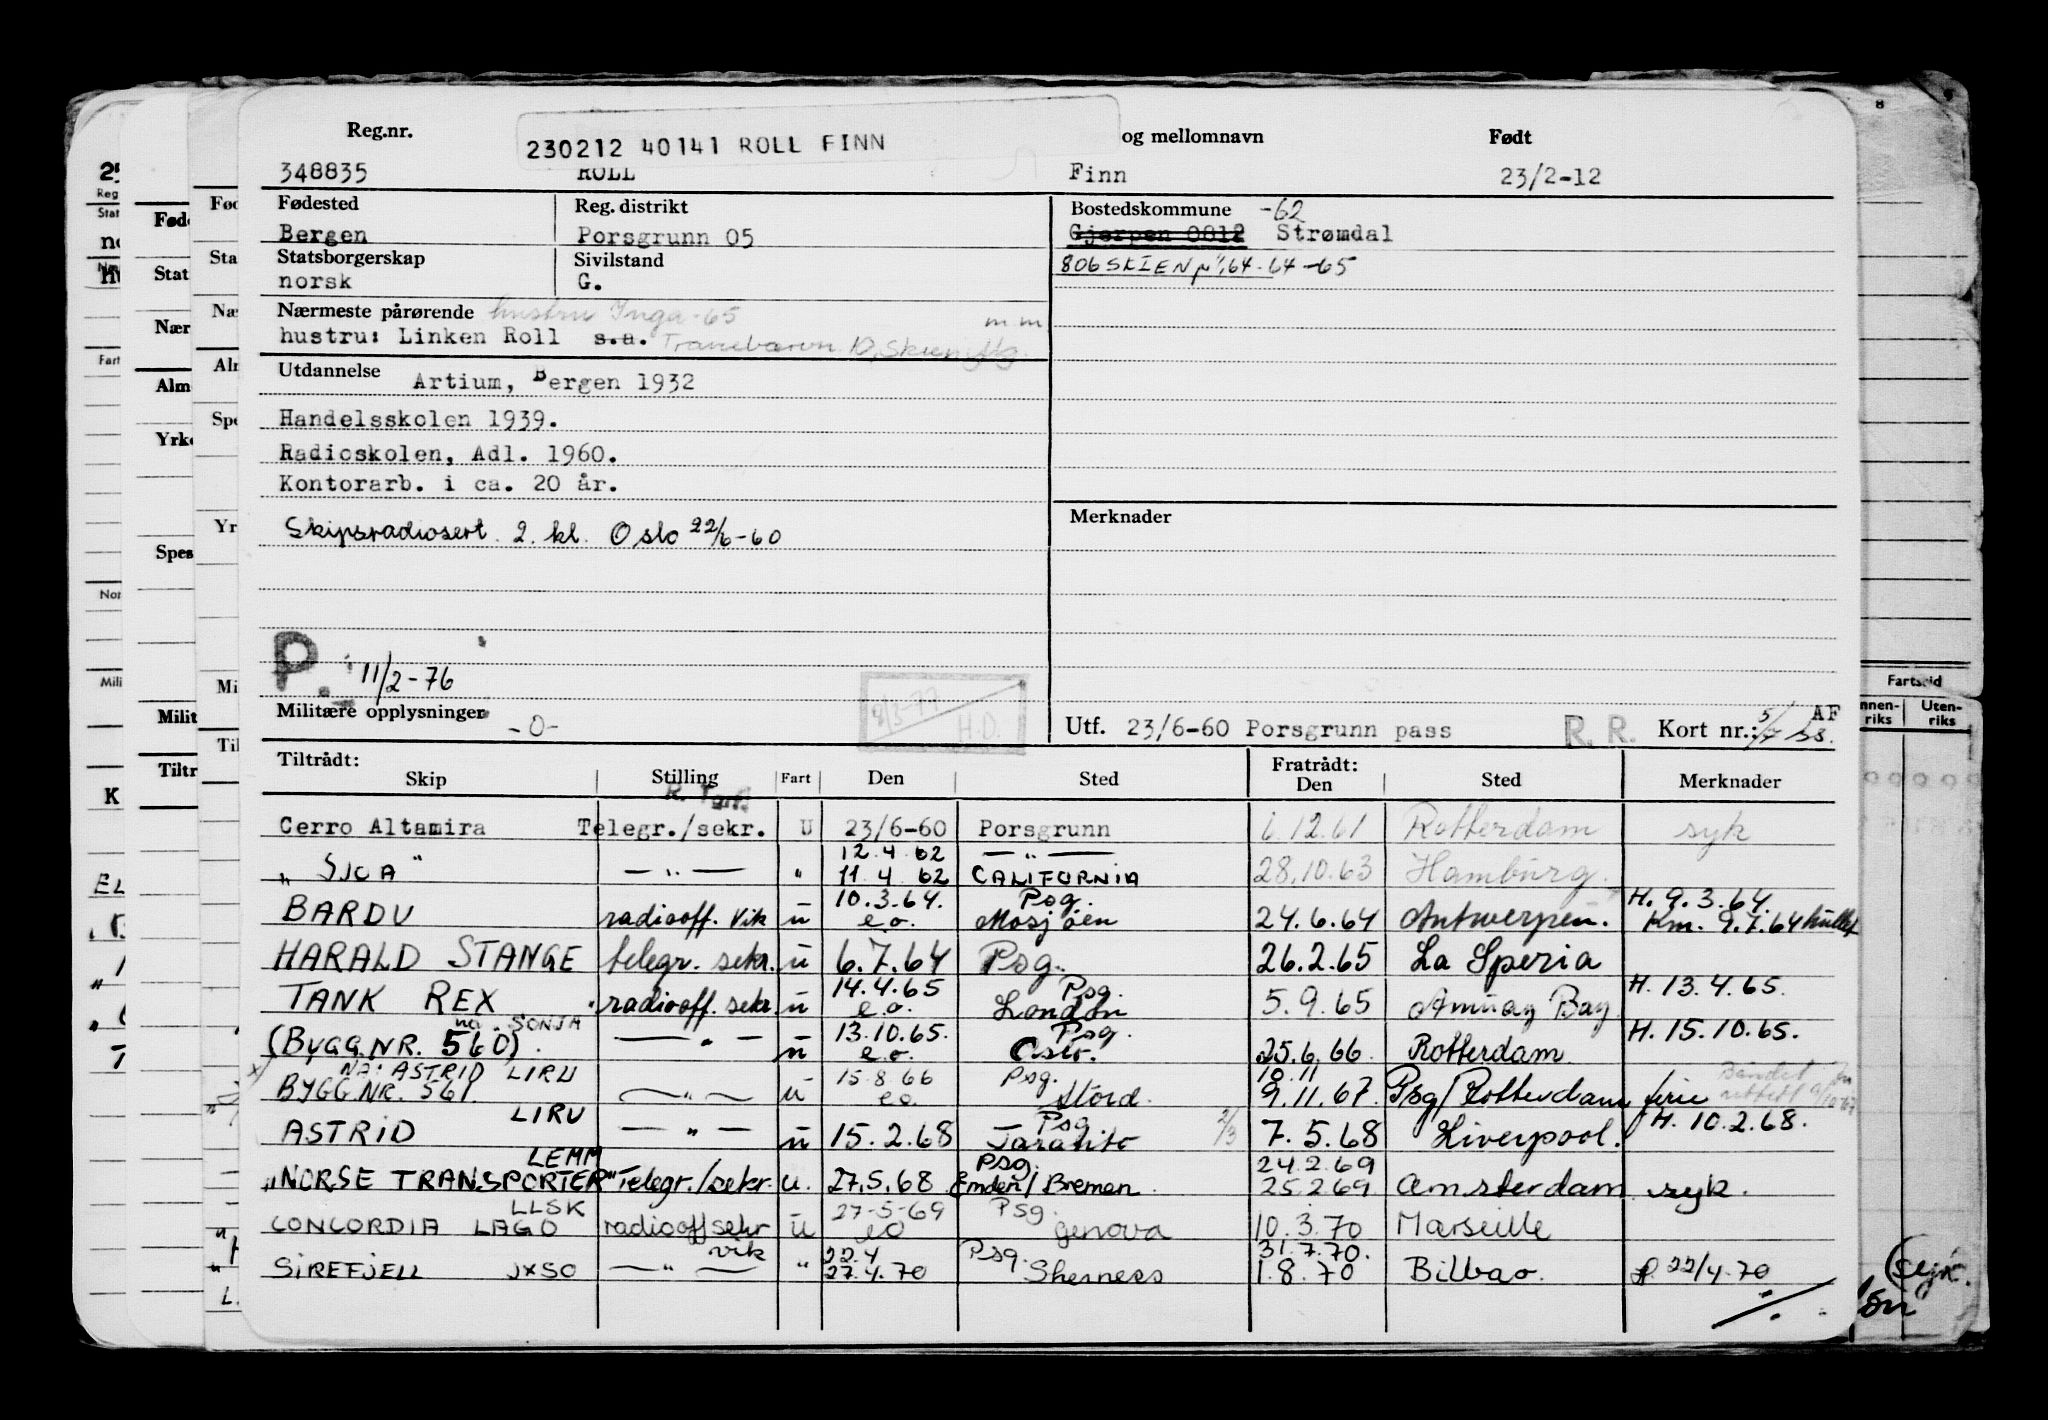 Reg.nr. og mellomnavn Født
230212 40141 ROLL FINN
348835 ROLL Finn 23/2-12
Fødested Reg. distrikt Bostedskommune -62
Bergen Porsgrunn 05 Gjerpen 0812 Strømdal
Statsborgerskap Sivilstand
norsk G.
806 SKIEN 64-65
Nærmeste pårørende hustru Inga-65 m.m.
hustru: Linken Roll s.a. 10, Skien
Utdannelse Artium, Bergen 1932
Handelsskolen 1939.
Radioskolen, Adl. 1960.
Kontorarb. i ca. 20 år.
Skipsradiosert. 2. kl. Oslo 22/6-60
Merknader
P. 11/2-76
8/3-77 H.D.
Militære opplysninger -0-
Utf. 23/6-60 Porsgrunn pass R. R. Kort nr.: AF
Tiltrådt: Fratrådt:
Skip Stilling Fart Den Sted Den Sted Merknader
Cerro Altamira Telegr./sekr. U 23/6-60 Porsgrunn 6.12.61 Rotterdam syk
12.4.62 — " —
" SJOA" — " — " 11.4.62 CALIFORNIA 28.10.63 Hamburg.
10.3.64. Psg. H. 9.3.64.
BARDU radiooff. vik u e.o. Mosjøen 24.6.64 Antwerpen. Km. 9.7.64 hullet
HARALD STANGE telegr. sekr. u 6.7.64 Psg. 26.2.65 La Speria
14.4.65 Psg. H. 13.4.65.
TANK REX radiooff. sekr u e.o. London 5.9.65 Amuay Bay
nå. SONJA 13.10.65. Psg. H. 15.10.65.
(BYGG NR. 560). — " — u e.o. Oslo. 25.6.66. Rotterdam
x) NÅ: ASTRID LIRU 15.8.66 Psg. 10.11
BYGG NR. 561. — " — u eo Stord. 9.11.67. Psg/Rotterdam ferie
LIRU Psg. H. 10.2.68.
ASTRID — " — u 15.2.68 Taranto 2/3 7.5.68 Liverpool.
LEMM Psg. 24.2.69
"NORSE TRANSPORTER" Telegr./sekr. u. 27.5.68 Emden/Bremen. 25.2.69 Amsterdam syk.
LLSK 27-5-69 Psg.
CONCORDIA LAGO radiooff sekr u eo Genova 10.3.70 Marseille
vik 22.4 Psg. 31.7.70.
SIREFJELL JXSO — " — " 27.4.70 Sherness 1.8.70 Bilbao. 22/4.70
Fartstid
Innen-riks Uten-riks
(syk.